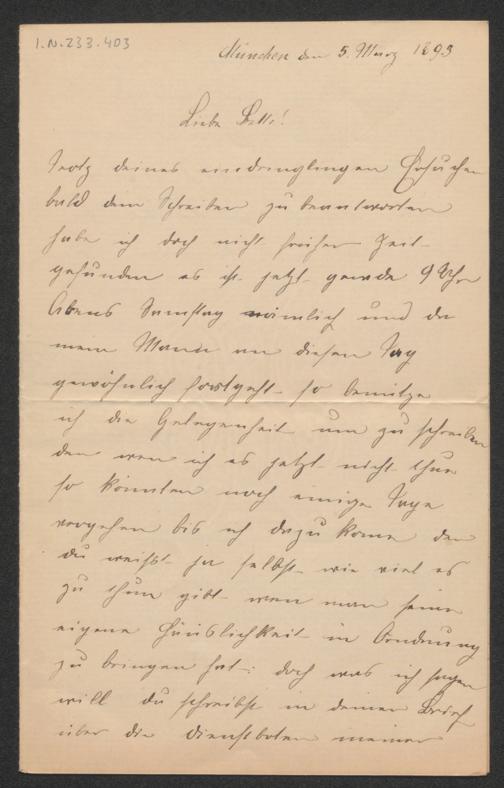 I.N.233.403
München den 5. März 1893
Liebe Betti!
Trotz deines eindringlingen Ersuchen
bald dein Schreiben zu beantworten
habe ich doch nicht früher Zeit
gefunden es ist jetzt gerade 9 Uhr
Abens Samstag nämlich und da
mein Mann an diesen Tag
gewöhnlich fortgeht so benütze
ich die Gelegenheit um zu schreiben
den wen ich es jetzt nicht thue
so könnten noch einige Tage
vorgehen bis ich dazu kome den
du weißt ja selbst wie viel es
zu thun gibt wen man seine
eigene Häuslichkeit in Ordnung
zu bringen hat: doch was ich sagen
will du schreibst in deinen Brief
über die Dienstboten meiner